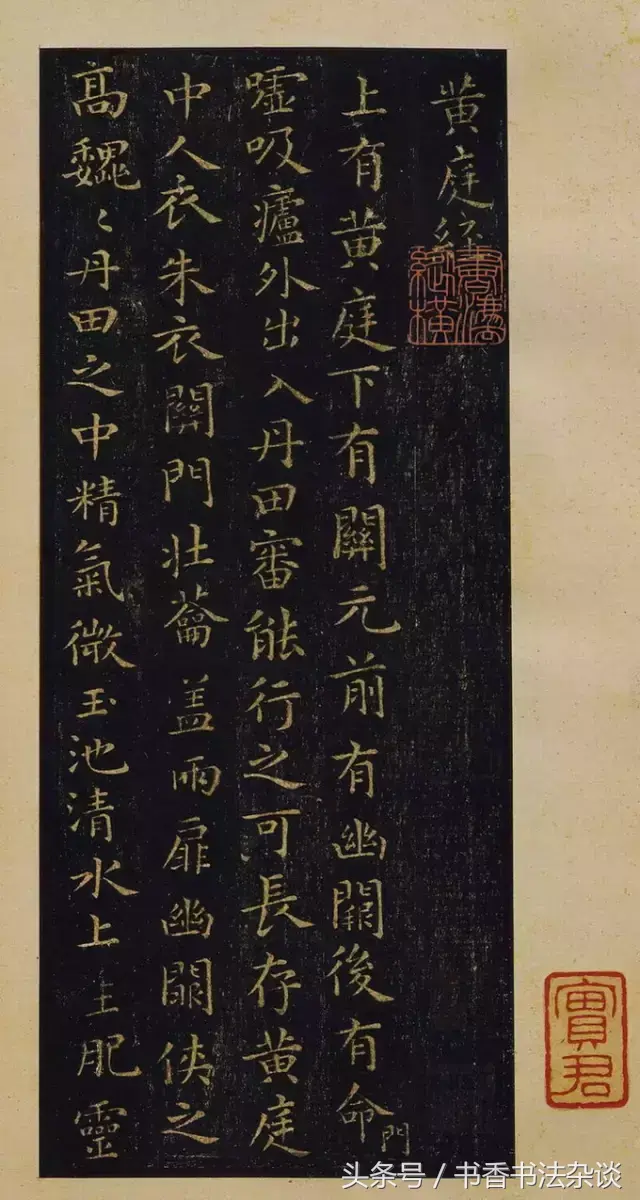 黄庭經
上有黄庭下有關元前有幽闕後有命門
嘘吸廬外出入丹田審能行之可長存黄庭
中人衣朱衣關門壯蘥盖兩扉幽闕俠之
高巍〻丹田之中精氣微玉池清水上生肥靈
實君
头条号 / 书香书法杂谈